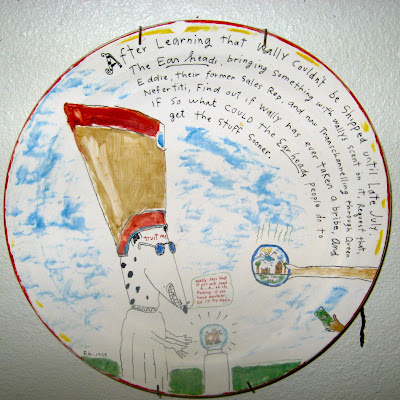 After Learning that Wally Couldn't be Shipped until Late July,
The Ear heads, bringing something with Wally's scent on it, Request that,
Eddie, their former Sales Rep, and now Transchannelling through Queen
Nefertiti, Find out if Wally has ever taken a bribe, and
IF So what COULD the Earheads people do to
get the Stuff Sooner.
Trust me
Wally says that
if you will send
you
have another